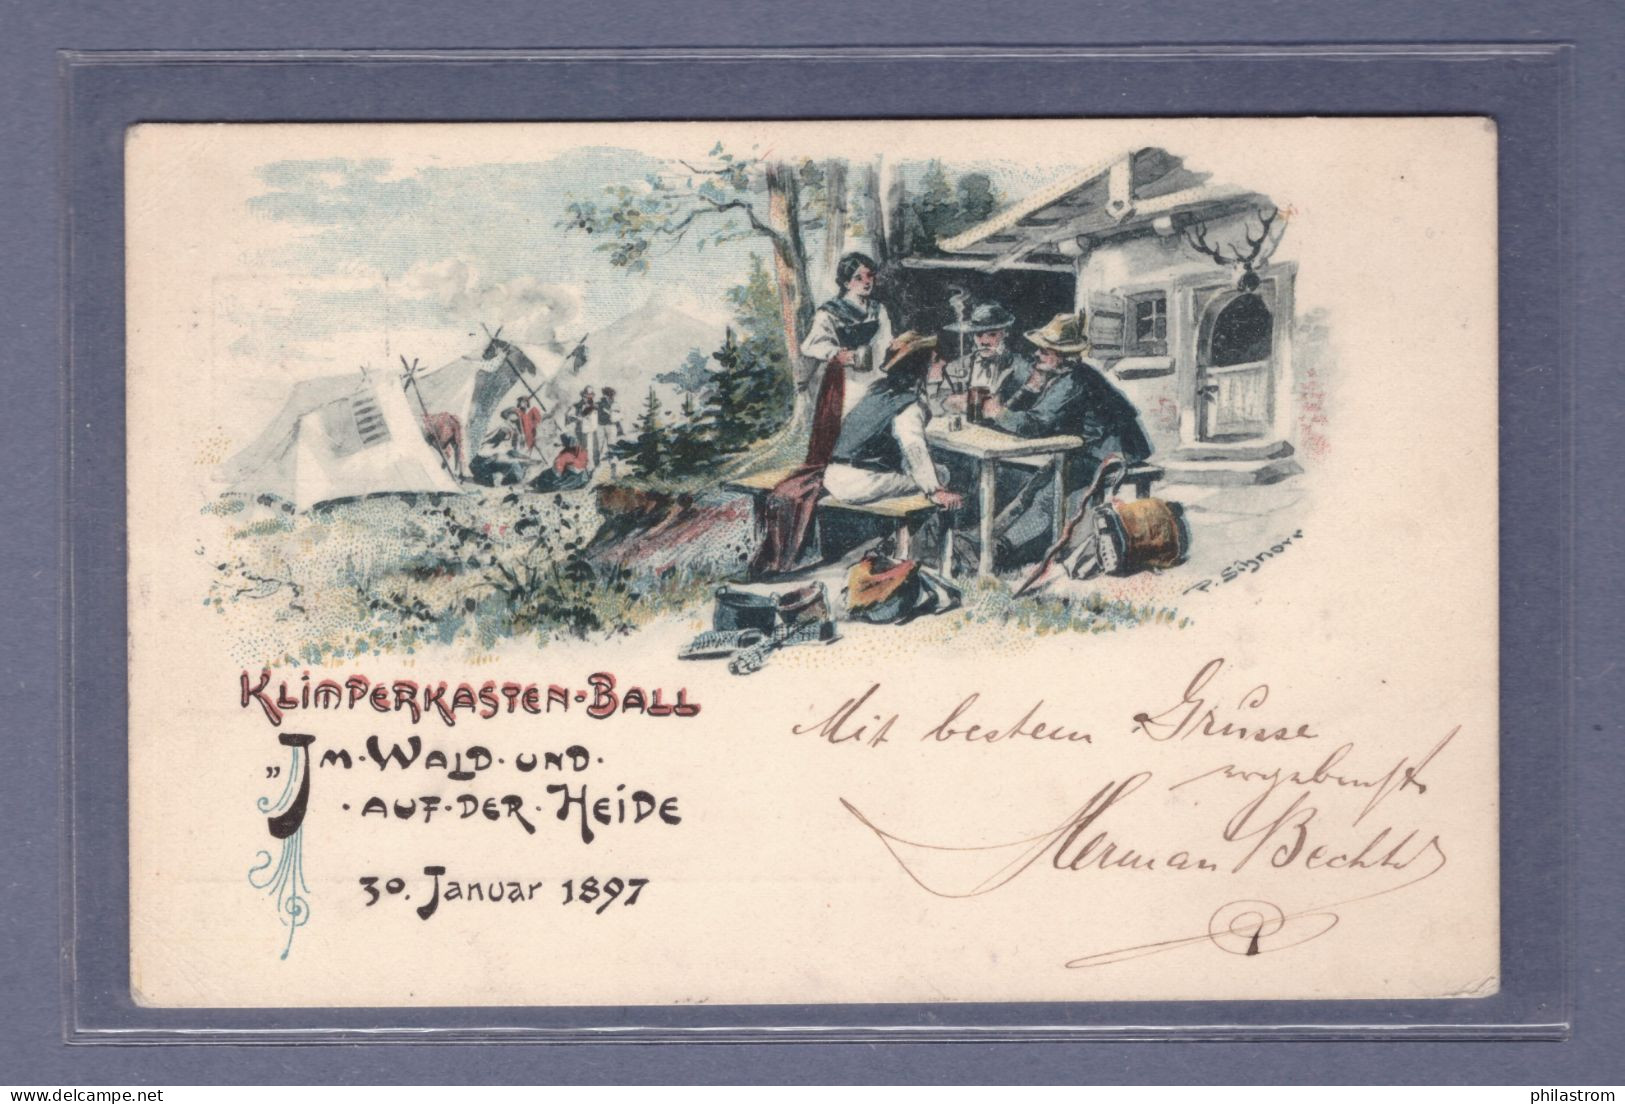 P. Schnorr
KLIMPERKASTEN-BALL
„IM·WALD·UND·
·AUF·DER·HEIDE
30. JANUAR 1897
Mit bestem Grüsse
ergebenst
Herman Bechth
philastrom